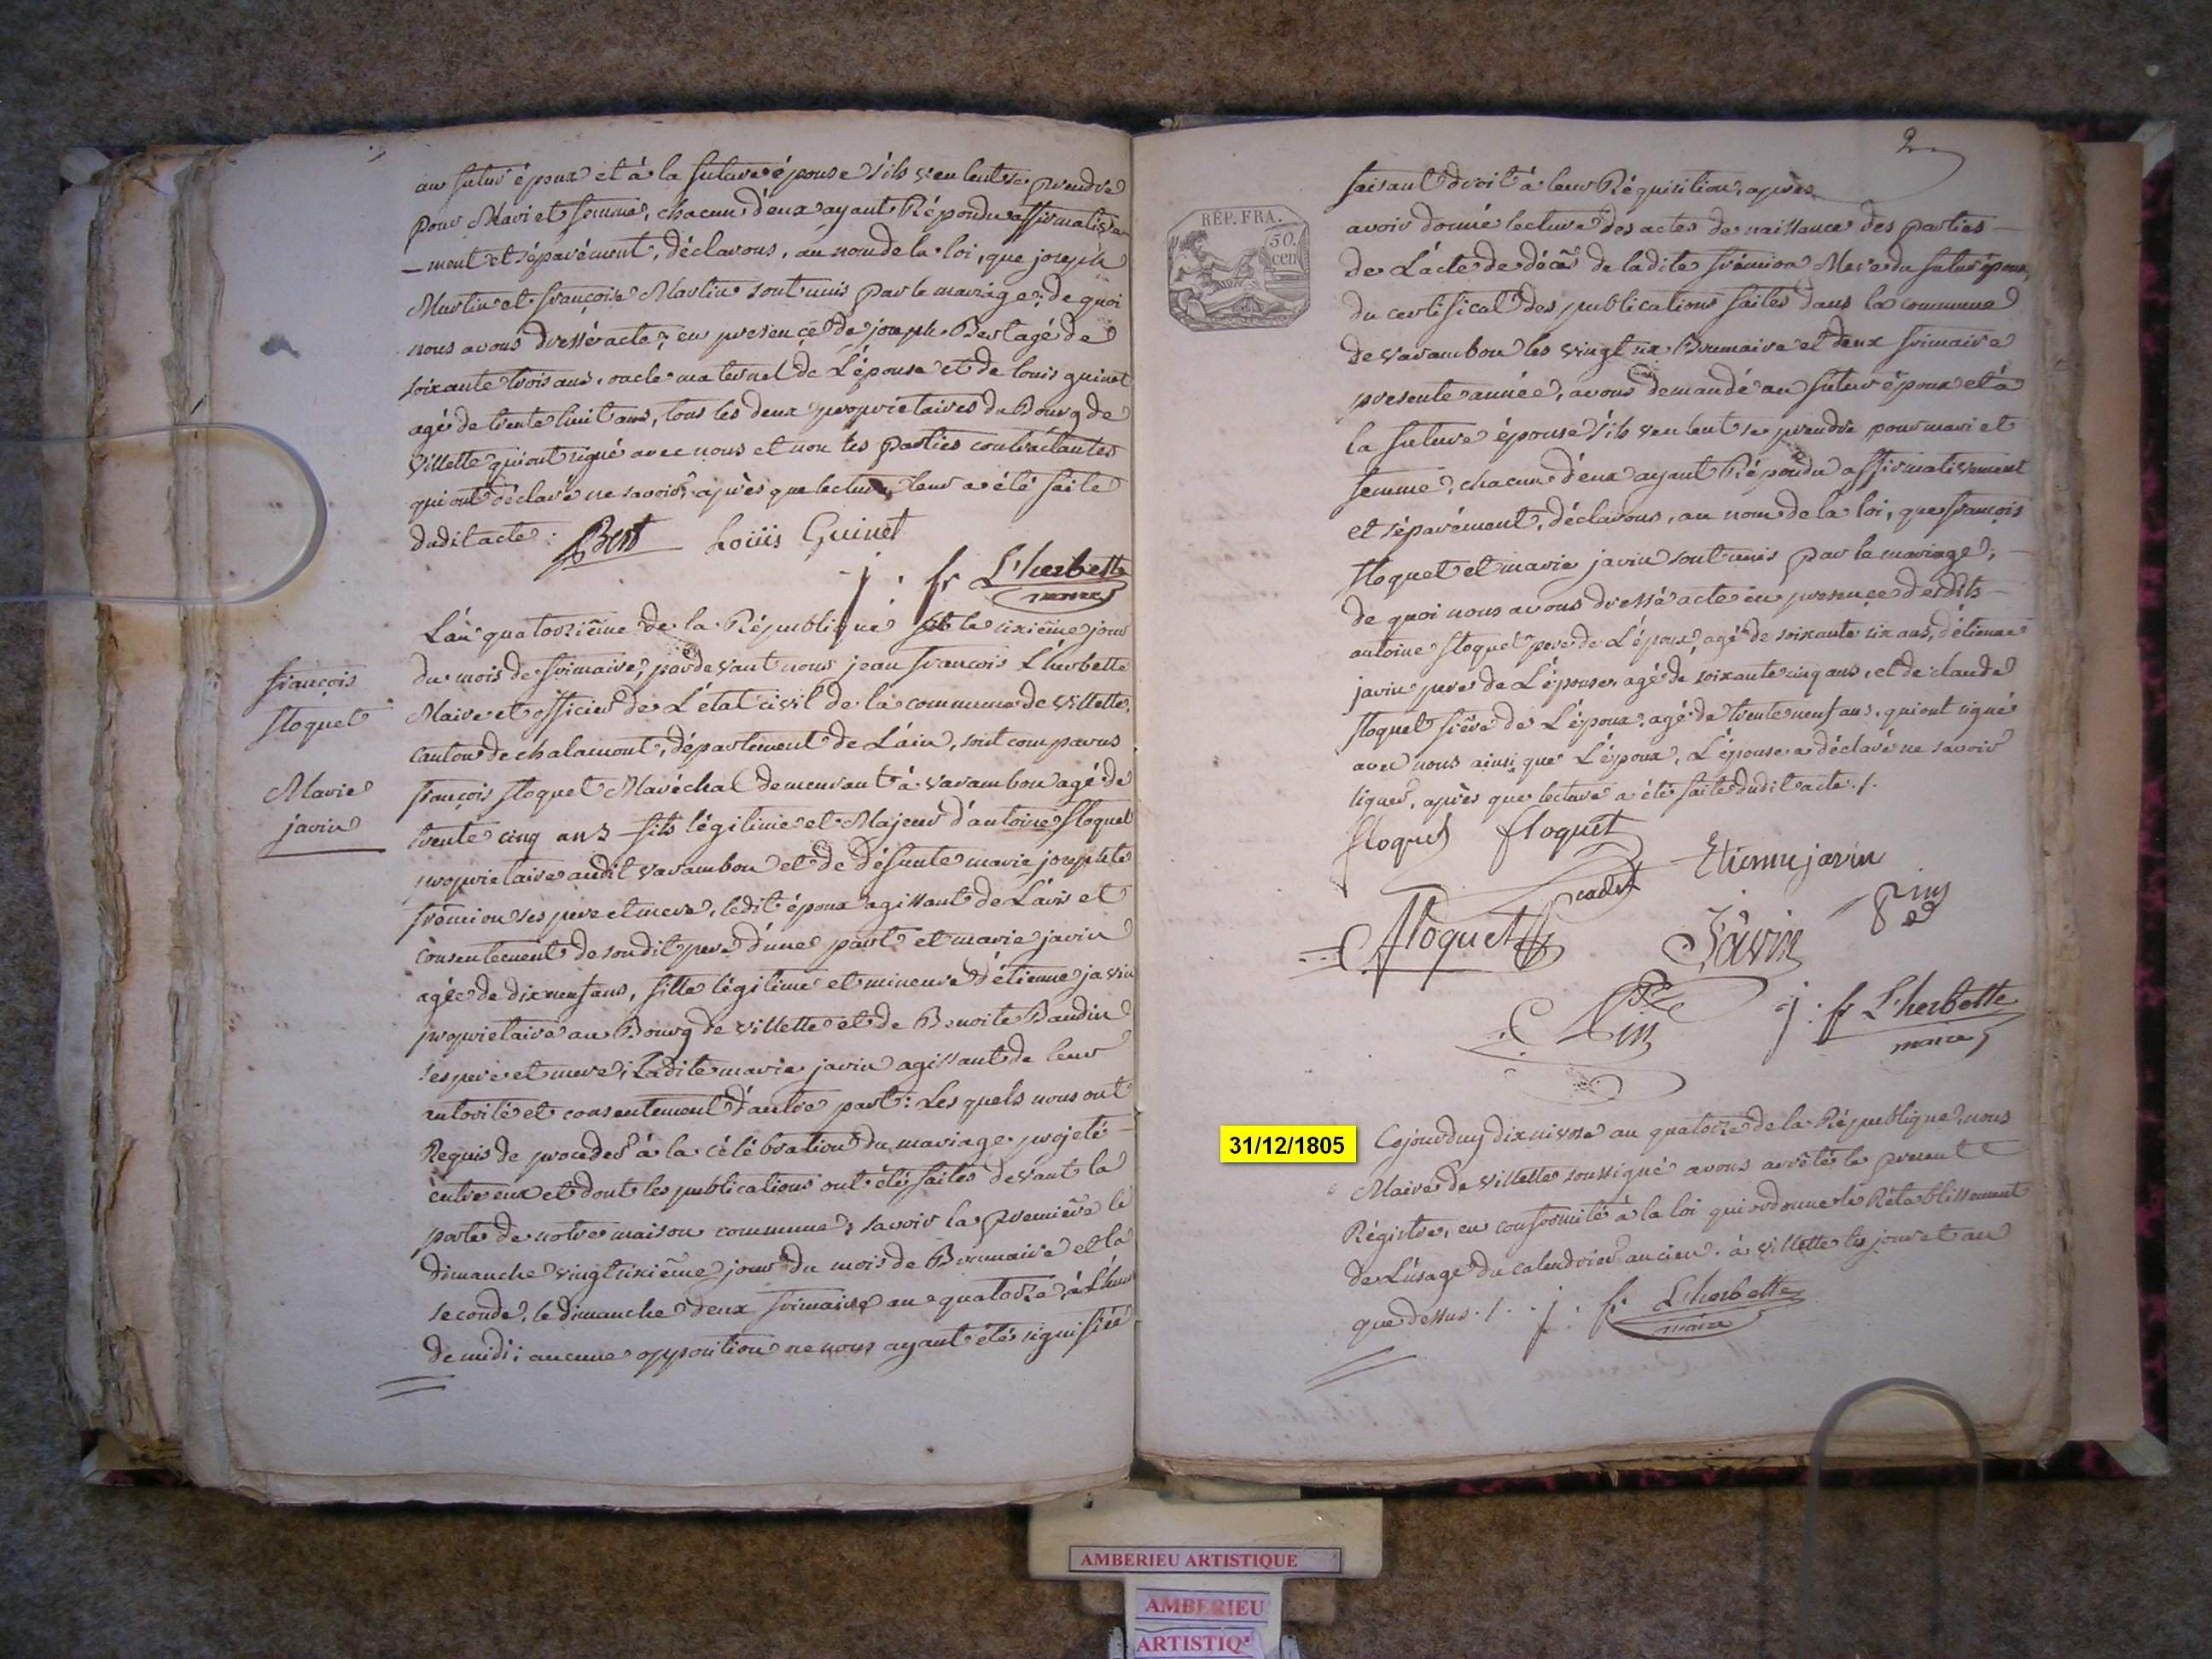 au futur époux et à la future épouse s'ils veulent se prendre
pour Mari et femme, chacun d'eux ayant Répondu affirmative
-ment et séparément, déclarons, au nom de la loi, que joseph
Martin et françoise Martin sont unis par le mariage; de quoi
nous avons dressé acte; en presence de joseph Bert agé de
soixante trois ans, oncle maternel de L'épouse et de louis guinet
agé de trente huit ans, tous les deux proprietaires du Bourg de
Villette qui ont signé avec nous et non les parties contractantes
qui ont déclaré ne savoir, après que lecture leur a été faite
dudit acte.
Bert Loüis Guinet
j. fr L'herbette
maire
L'an quatorzième de la République et le sixième jour
du mois de frimaire, pardevant nous jean françois L'herbette
Maire et officier de L'état civil de la commune de Villette,
canton de chalamont, département de L'ain, sont comparus
françois floquet Maréchal demeurant à varambon agé de
trente cinq ans fils légitime et Majeur d'antoine floquet
proprietaire audit varambon et de défunte marie josephte
frémion ses pere et mere, ledit époux agissant de L'avis et
consentement de son dit pere d'une part et marie javin
agée de dix neuf ans, fille légitime et mineure d'étienne javin
proprietaire au Bourg de villette et de Benoite Baudin
ses pere et mere; Ladite marie javin agissant de leur
autorité et consentement d'autre part: Les quels nous ont
Requis de proceder à la célébration du mariage projeté
entre eux et dont les publications ont été faites devant la
porte de notre maison commune; savoir la première le
dimanche vingt sixième jour du mois de Brumaire et la
seconde, le dimanche deux frimaire an quatorze, à L'heure
de midi; aucune opposition ne nous ayant été signifiée
françois
floquet
Marie
javin
2
RÉP. FRA.
50.
cen
faisant droit à leur Réquisition, après
avoir donné lecture des actes de naissance des parties
de L'acte de décès de ladite frémion Mere du futur époux,
du certificat des publications faites dans la commune
de varambon les vingt six Brumaire et deux frimaire
presente année, avons demandé au futur époux et à
la future épouse s'ils veulent se prendre pour mari et
femme, chacun d'eux ayant Répondu affirmativement
et séparément, déclarons, au nom de la loi, que françois
floquet et marie javin sont unis par le mariage;
de quoi nous avons dressé acte en presence desdits
antoine floquet pere de L'époux, agé de soixante six ans, d'étienne
javin pere de L'épouse, agé de soixante cinq ans, et de claude
floquet frère de L'époux, agé de trente neuf ans, qui ont signé
avec nous ainsi que L'époux, L'épouse a déclaré ne savoir
signer, après que lecture a été faite dudit acte./.
floquet floquet
cadet
Etienne javin
floquet
Javin
j. fr L'herbette
maire
31/12/1805
Cejourduy dix nivose an quatorze de la République, nous
Maire de Villette soussigné avons arrêté le present
Régistre, en conformité à la loi qui ordonne le Rétablissement
de L'usage du calendrier ancien. à villette les jour et an
que dessus./.
j. fr. L'herbette
maire
AMBERIEU ARTISTIQUE
AMBERIEU
ARTISTIQ